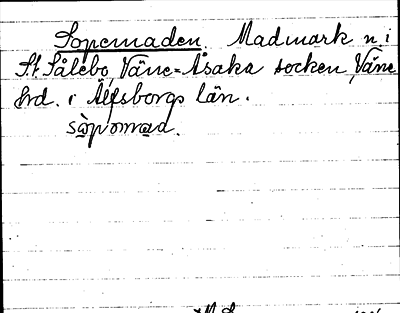 Sopemaden. Madmark n i
St. Sålebo, Väne-Åsaka socken, Väne
hrd. i Älfsborgs län.
sòpomad.